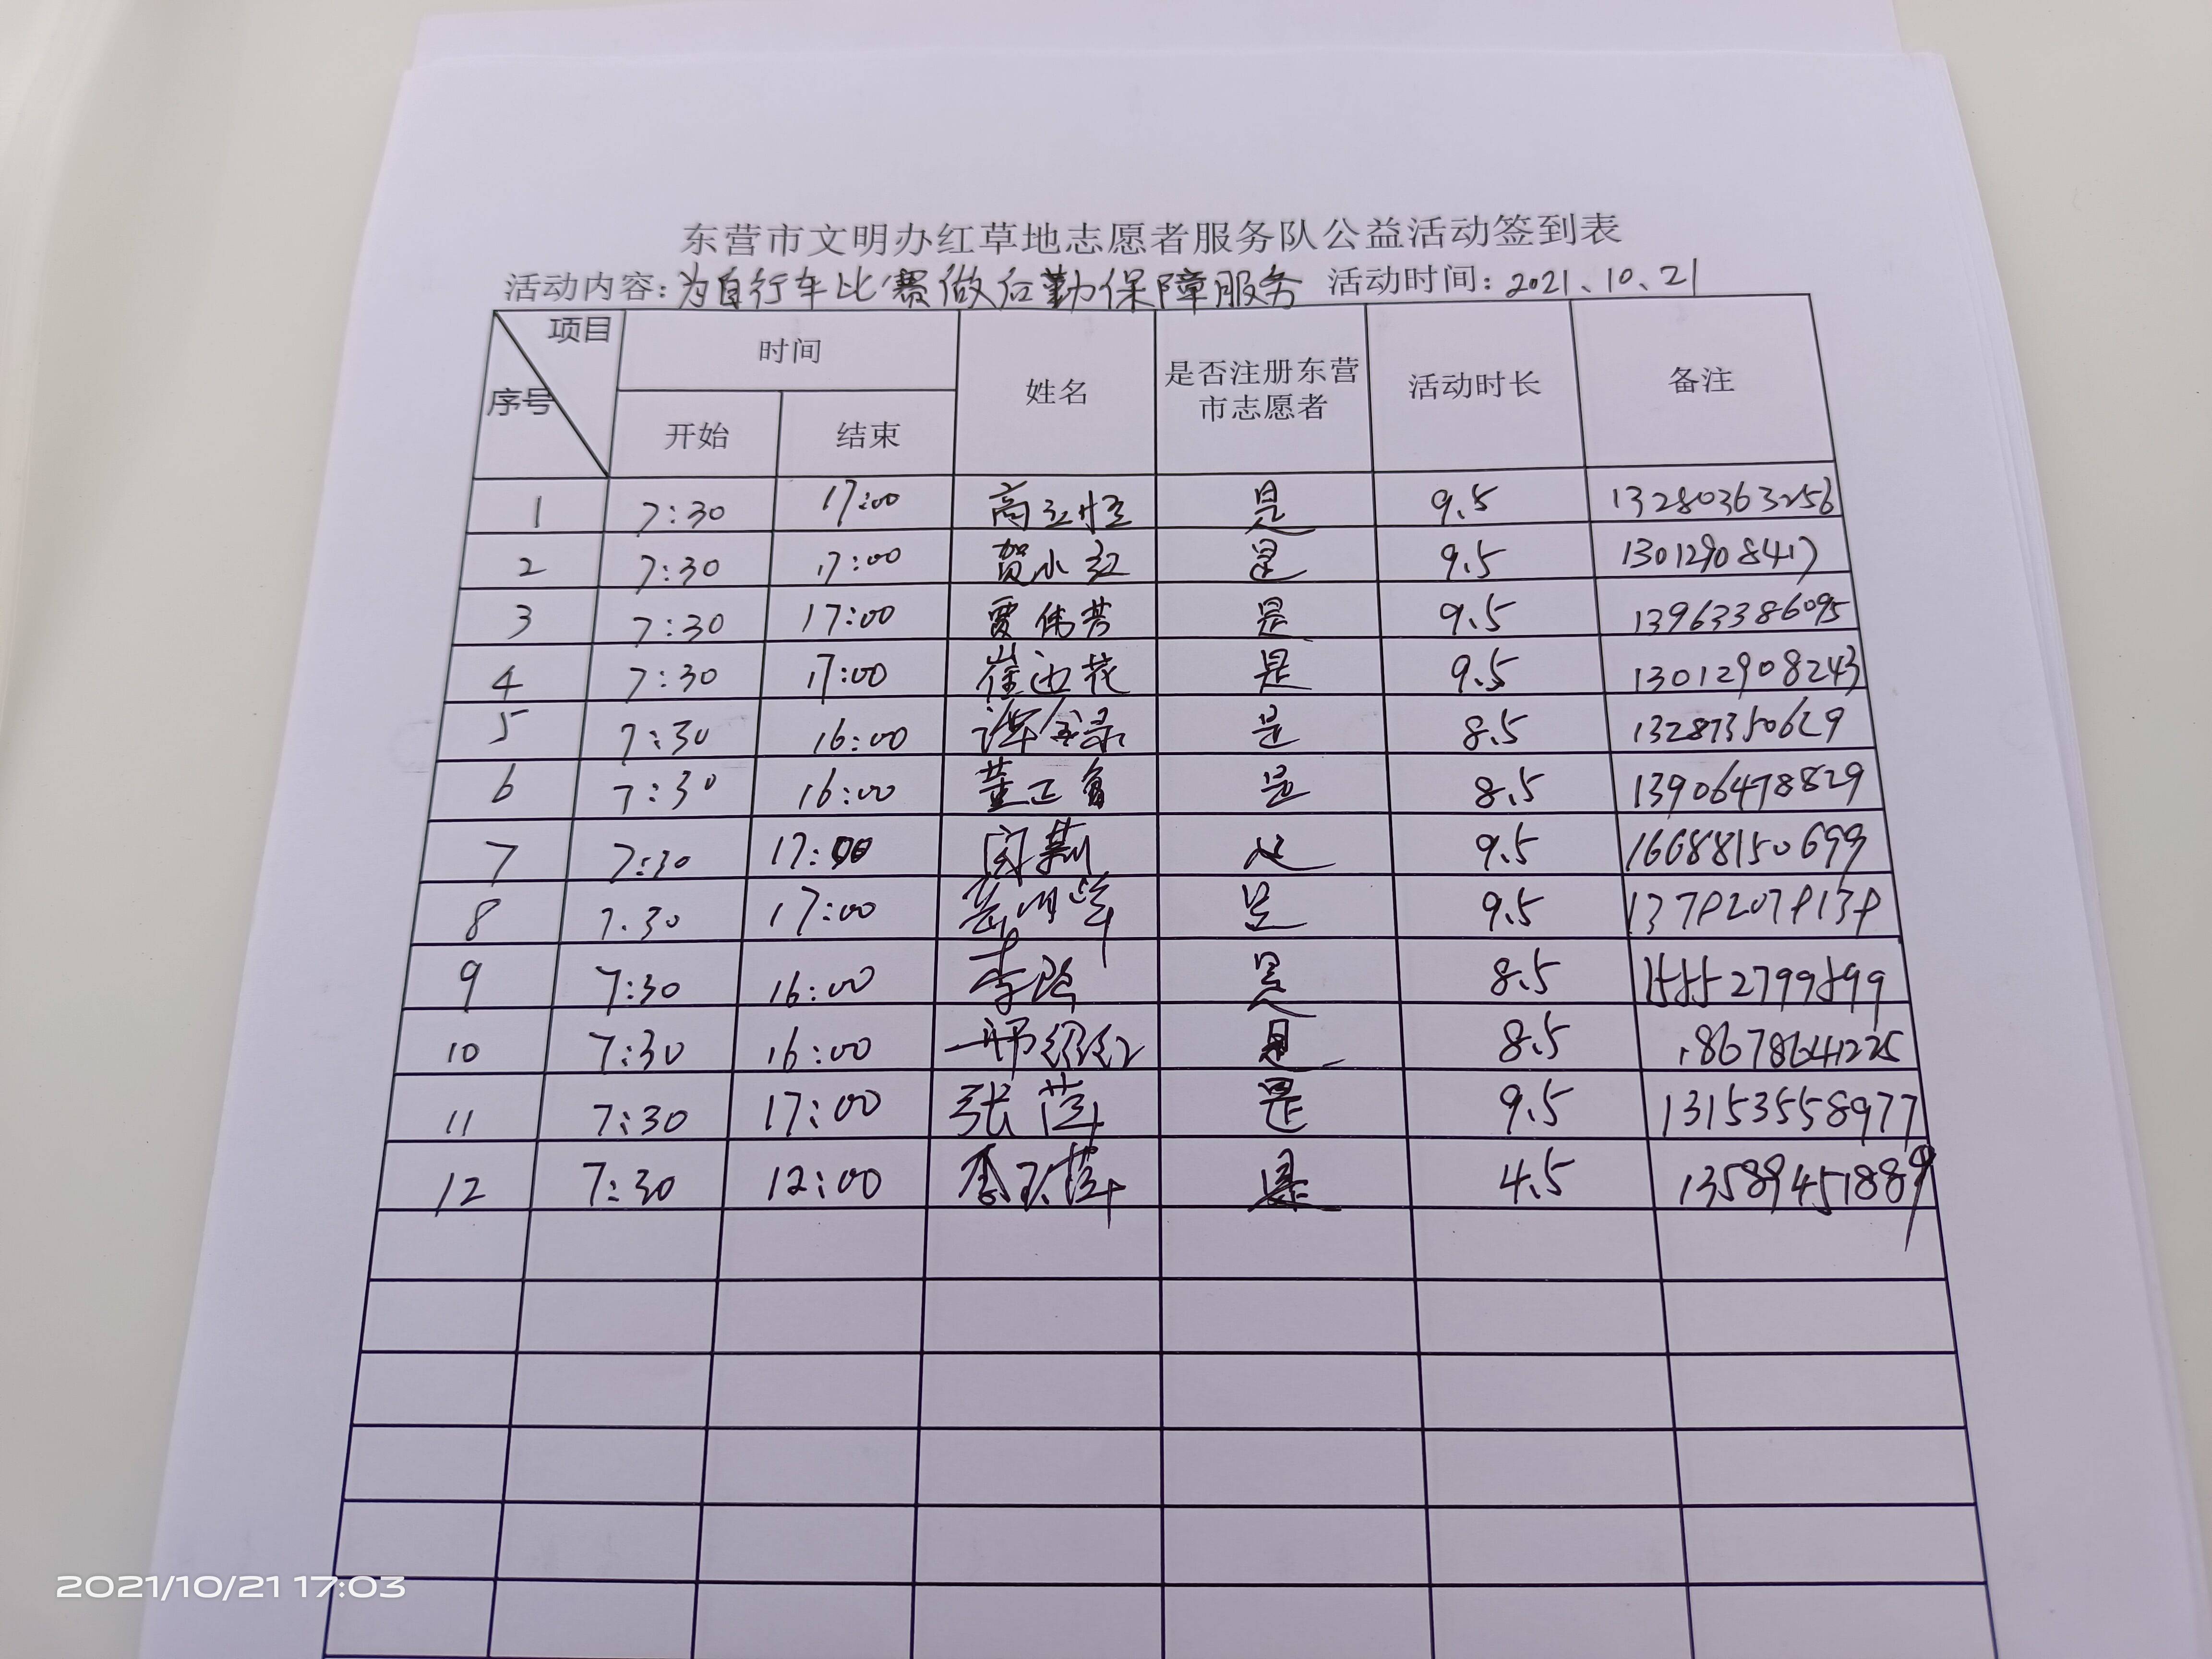 东营市文明办红草地志愿者服务队公益活动签到表
活动内容：为自行车比赛做后勤保障服务 活动时间：2021、10、21
项目 序号 时间 姓名 是否注册东营市志愿者 活动时长 备注
开始 结束
1 7:30 17:00 高立恒 是 9.5 13280363256
2 7:30 17:00 贺小红 是 9.5 13012908417
3 7:30 17:00 贾伟芳 是 9.5 13963386095
4 7:30 17:00 崔迎花 是 9.5 13012908243
5 7:30 16:00 是 8.5 13287350629
6 7:30 16:00 董正 是 8.5 13906478829
7 7:30 17:00 是 9.5 16688150699
8 7.30 17:00 是 9.5
9 7:30 16:00 李 是 8.5 15552799899
10 7:30 16:00 是 8.5 18678641225
11 7:30 17:00 张萍 是 9.5 13153558977
12 7:30 12:00 李玉萍 是 4.5 13589451889
2021/10/21 17:03